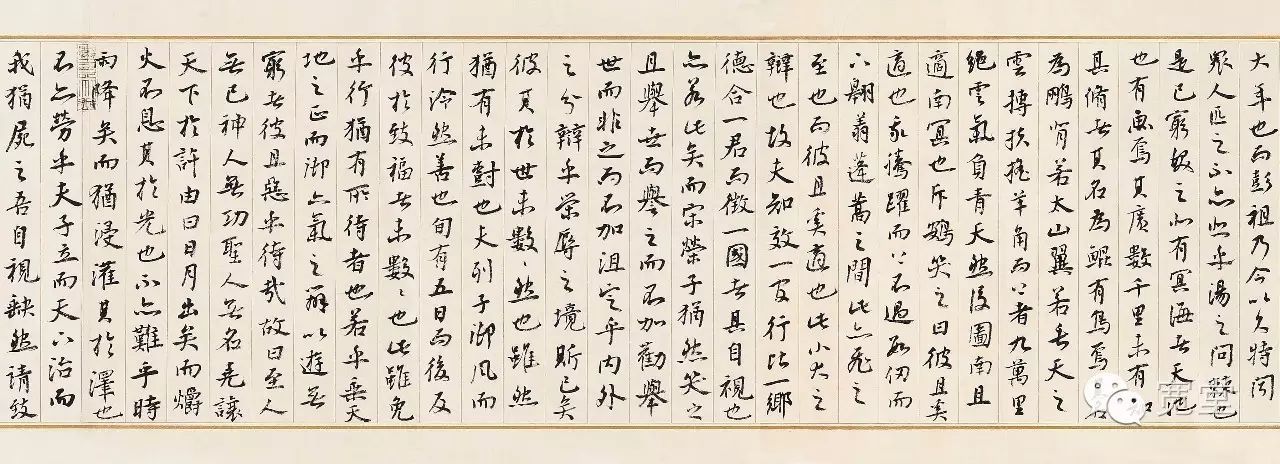 大年也而彭祖乃今以久特聞
眾人匹之不亦悲乎湯之問棘也
是已窮髮之北有冥海者天池
也有魚焉其廣數千里未有知
其脩者其名為鯤有鳥焉其名
為鵬背若太山翼若垂天之
雲摶扶搖羊角而上者九萬里
絕雲氣負青天然後圖南且
適南冥也斥鴳笑之曰彼且奚
適也我騰躍而上不過數仞而
下翱翔蓬蒿之間此亦飛之
至也而彼且奚適也此小大之
辯也故夫知效一官行比一鄉
德合一君而徵一國者其自視也
亦若此矣而宋榮子猶然笑之
且舉世而譽之而不加勸舉
世而非之而不加沮定乎內外
之分辯乎榮辱之境斯已矣
彼其於世未數〻然也雖然
猶有未樹也夫列子御風而
行泠然善也旬有五日而後反
彼於致福者未數〻也此雖免
乎行猶有所待者也若乎乘天
地之正而御六氣之辯以遊無
窮者彼且惡乎待哉故曰至人
無己神人無功聖人無名堯讓
天下於許由曰日月出矣而爝
火不息其於光也不亦難乎時
雨降矣而猶浸灌其於澤也
不亦勞乎夫子立而天下治而
我猶屍之吾自視缺然請致
宽堂